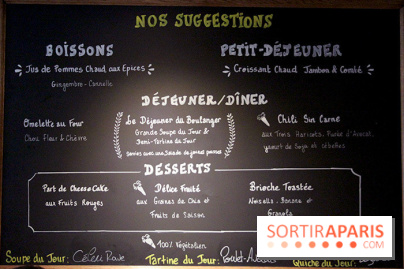 NOS SUGGESTIONS
BOISSONS
Jus de Pommes Chaud aux Epices
Gingembre - Cannelle
PETIT-DÉJEUNER
Croissant Chaud Jambon & Comté
DÉJEUNER/DÎNER
Omelette au Four
Chou Fleur & Chèvre
Le Déjeuner du Boulanger
Grande Soupe du Jour &
Demi-Tartine du Jour
Servies avec une Salade de jeunes pousses
Chili Sin Carne
aux Trois Haricots, Purée d'Avocat,
yaourt de Soja et
DESSERTS
Part de Cheese Cake
aux Fruits Rouges
Délice Fruité
aux Graines de Chia et
Fruits de Saison
Brioche Toastée
Nutella, Banane et
Granola
100% Végétalien
Soupe du Jour: Céleri Rave
Tartine du Jour: Poulet
Quiche du Jour:
SORTIRAPARIS
.COM